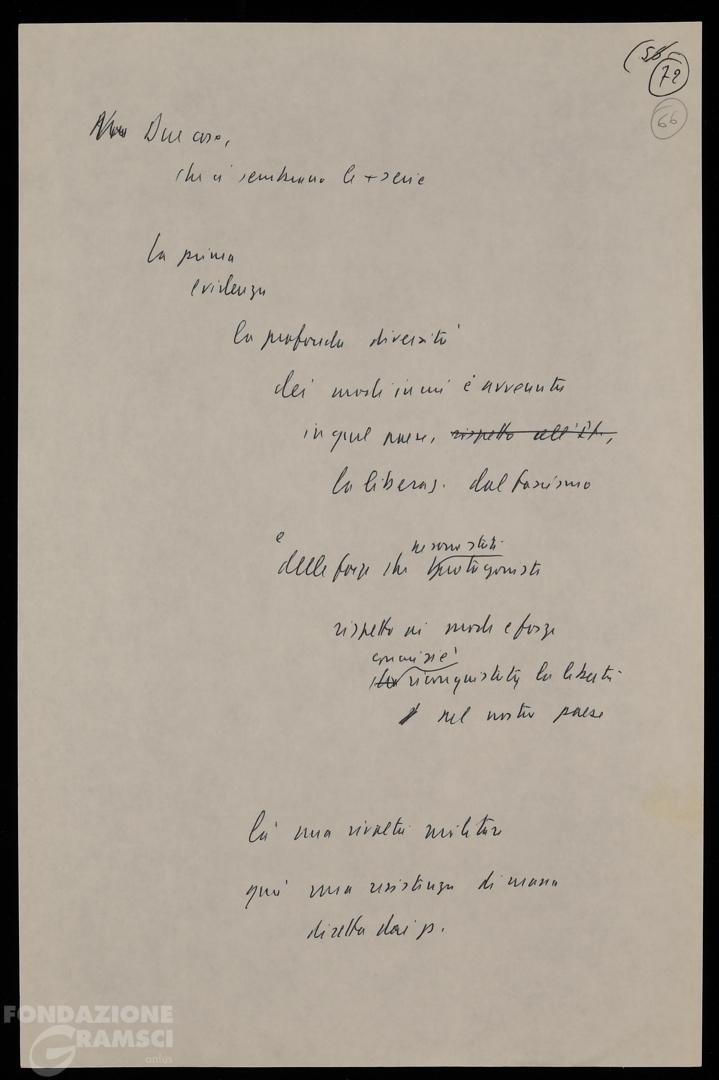 (56
72
66
Due cose,
che ci sembrano le + serie
la prima
evidenza
la profonda diversità
dei modi in cui è avvenuta
in quel paese, rispetto all'It.,
la liberaz. dal fascismo
e
ne sono stati
delle forze che protagoniste
rispetto ai modi e forze
con cui si è
che riconquistata la libertà
nel nostro paese
là una rivolta militare
qui una resistenza di massa
diretta dai p.
FONDAZIONE
GRAMSCI
onlus